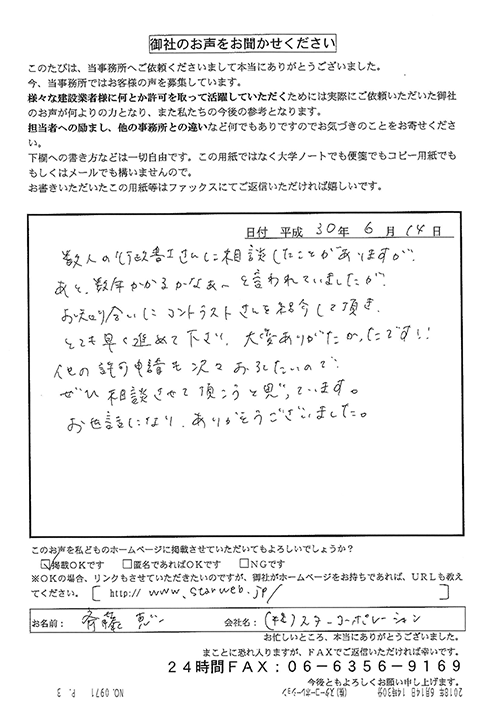 御社のお声をお聞かせください
このたびは、当事務所へご依頼くださいまして本当にありがとうございました。
今、当事務所ではお客様の声を募集しています。
様々な建設業者様に何とか許可を取って活躍していただくためには実際にご依頼いただいた御社
のお声が何よりの力となり、また私たちの今後の参考となります。
担当者への励まし、他の事務所との違いなど何でもありですのでお気づきのことをお寄せくださ
い。
下欄への書き方などは一切自由です。この用紙ではなく大学ノートでも便箋でもコピー用紙でも
もしくはメールでも構いませんので。
お書きいただいたこの用紙等はファックスにてご返信いただければ嬉しいです。
日付 平成 30年 6 月 14 日
数人の行政書士さんに相談したことがありますが、
あと、数年かかるかなぁ〜と言われていましたが、
お知り合いに コントラストさんを紹介して頂き、
とても早く進めて下さり、大変ありがたかったです!!
他の許可申請も次々おろしたいので、
ぜひ相談させて頂こうと思っています。
お世話になり、ありがとうございました。
このお声を私どものホームページに掲載させていただいてもよろしいでしょうか?
☑掲載OKです □匿名であればOKです □NGです
※OKの場合、リンクもさせていただきたいのですが、御社がホームページをお持ちであれば、URLも教え
てください。[ http:// www.starweb.jp/ ]
お名前: 斉藤 会社名: (株)スターコーポレーション
お忙しいところ、本当にありがとうございました。
まことに恐れ入りますが、FAXでご返信いただければ幸いです。
24時間FAX:06-6356-9169
今後ともよろしくお願い申し上げます。
2018年 6月14日 14時30分 (株)スターコーポレーション NO. 0971 P. 3